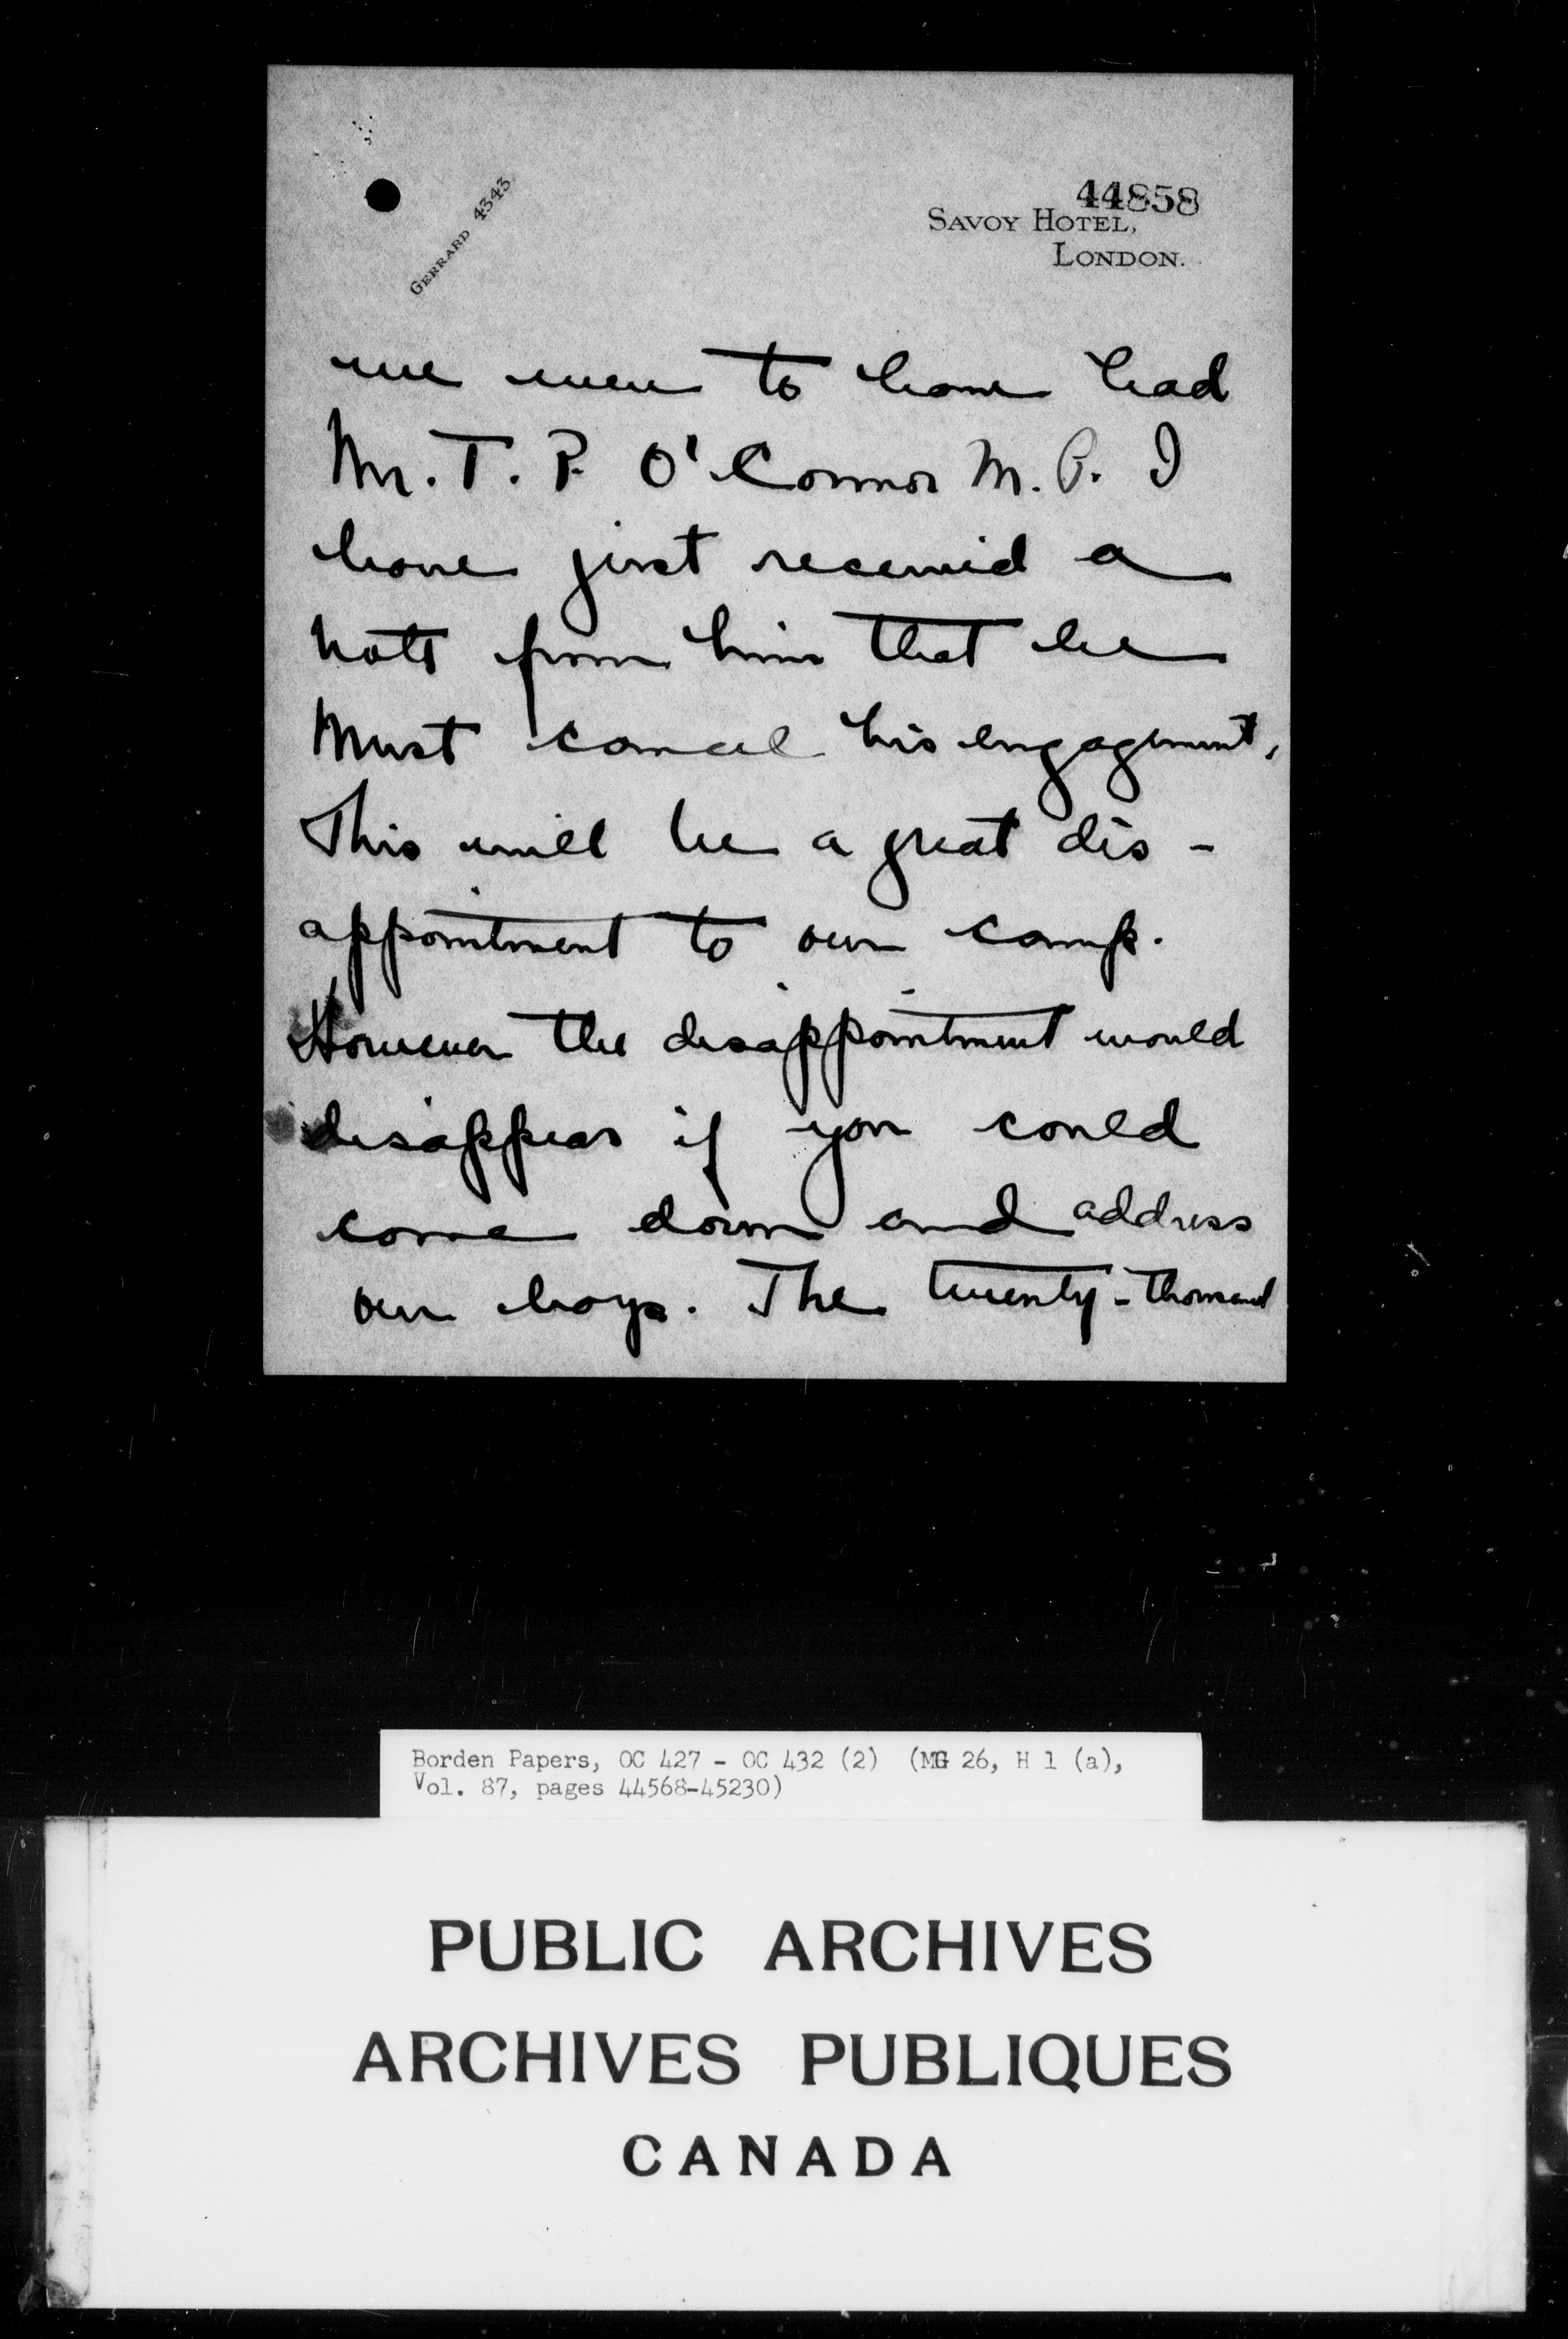 44858
GERRARD 4343.
SAVOY HOTEL,
LONDON.
we were to have had
Mr. T. P. O'Connor M.P. I
have just received a
note from him that he
must cancel his engagement.
This will be a great dis-
appointment to our camp.
However the disappointment would
disappear if you could
come down and address
our boys. The twenty-thousand
Borden Papers, OC 427 - OC 432 (2) (MG 26, H 1 (a),
Vol. 87, pages 44568-45230)
PUBLIC ARCHIVES
ARCHIVES PUBLIQUES
CANADA